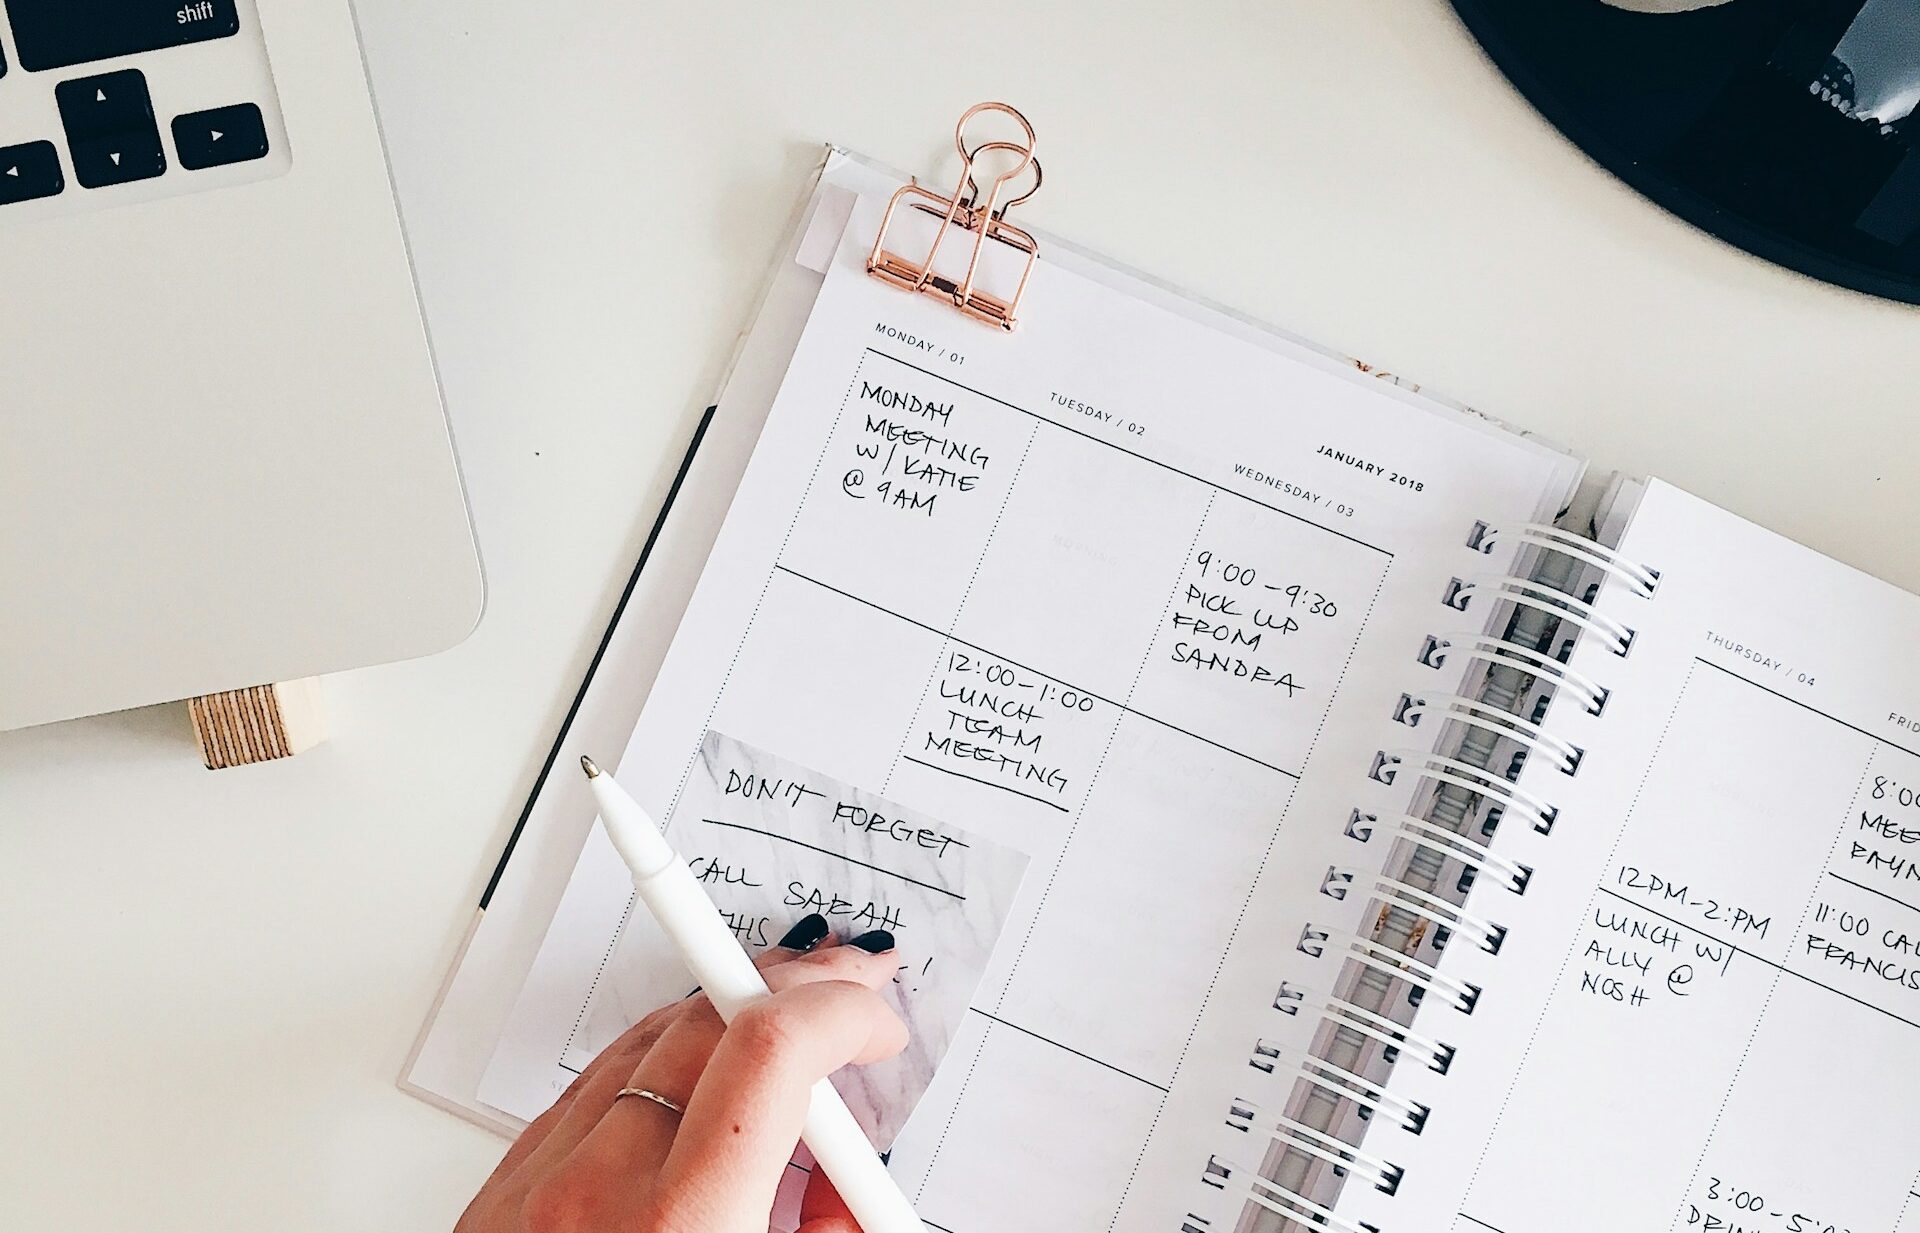 shift
MONDAY / 01
MONDAY
MEETING
W/ KATIE
@ 9AM
TUESDAY / 02
12:00-1:00
LUNCH
TEAM
MEETING
JANUARY 2018
WEDNESDAY / 03
9:00-9:30
PICK UP
FROM
SANDRA
DON'T FORGET
CALL SARAH
THIS
!
THURSDAY / 04
12PM-2:PM
LUNCH W/
ALLY @
NOSH
8:00
11:00
FRANCIS
3:00-5: